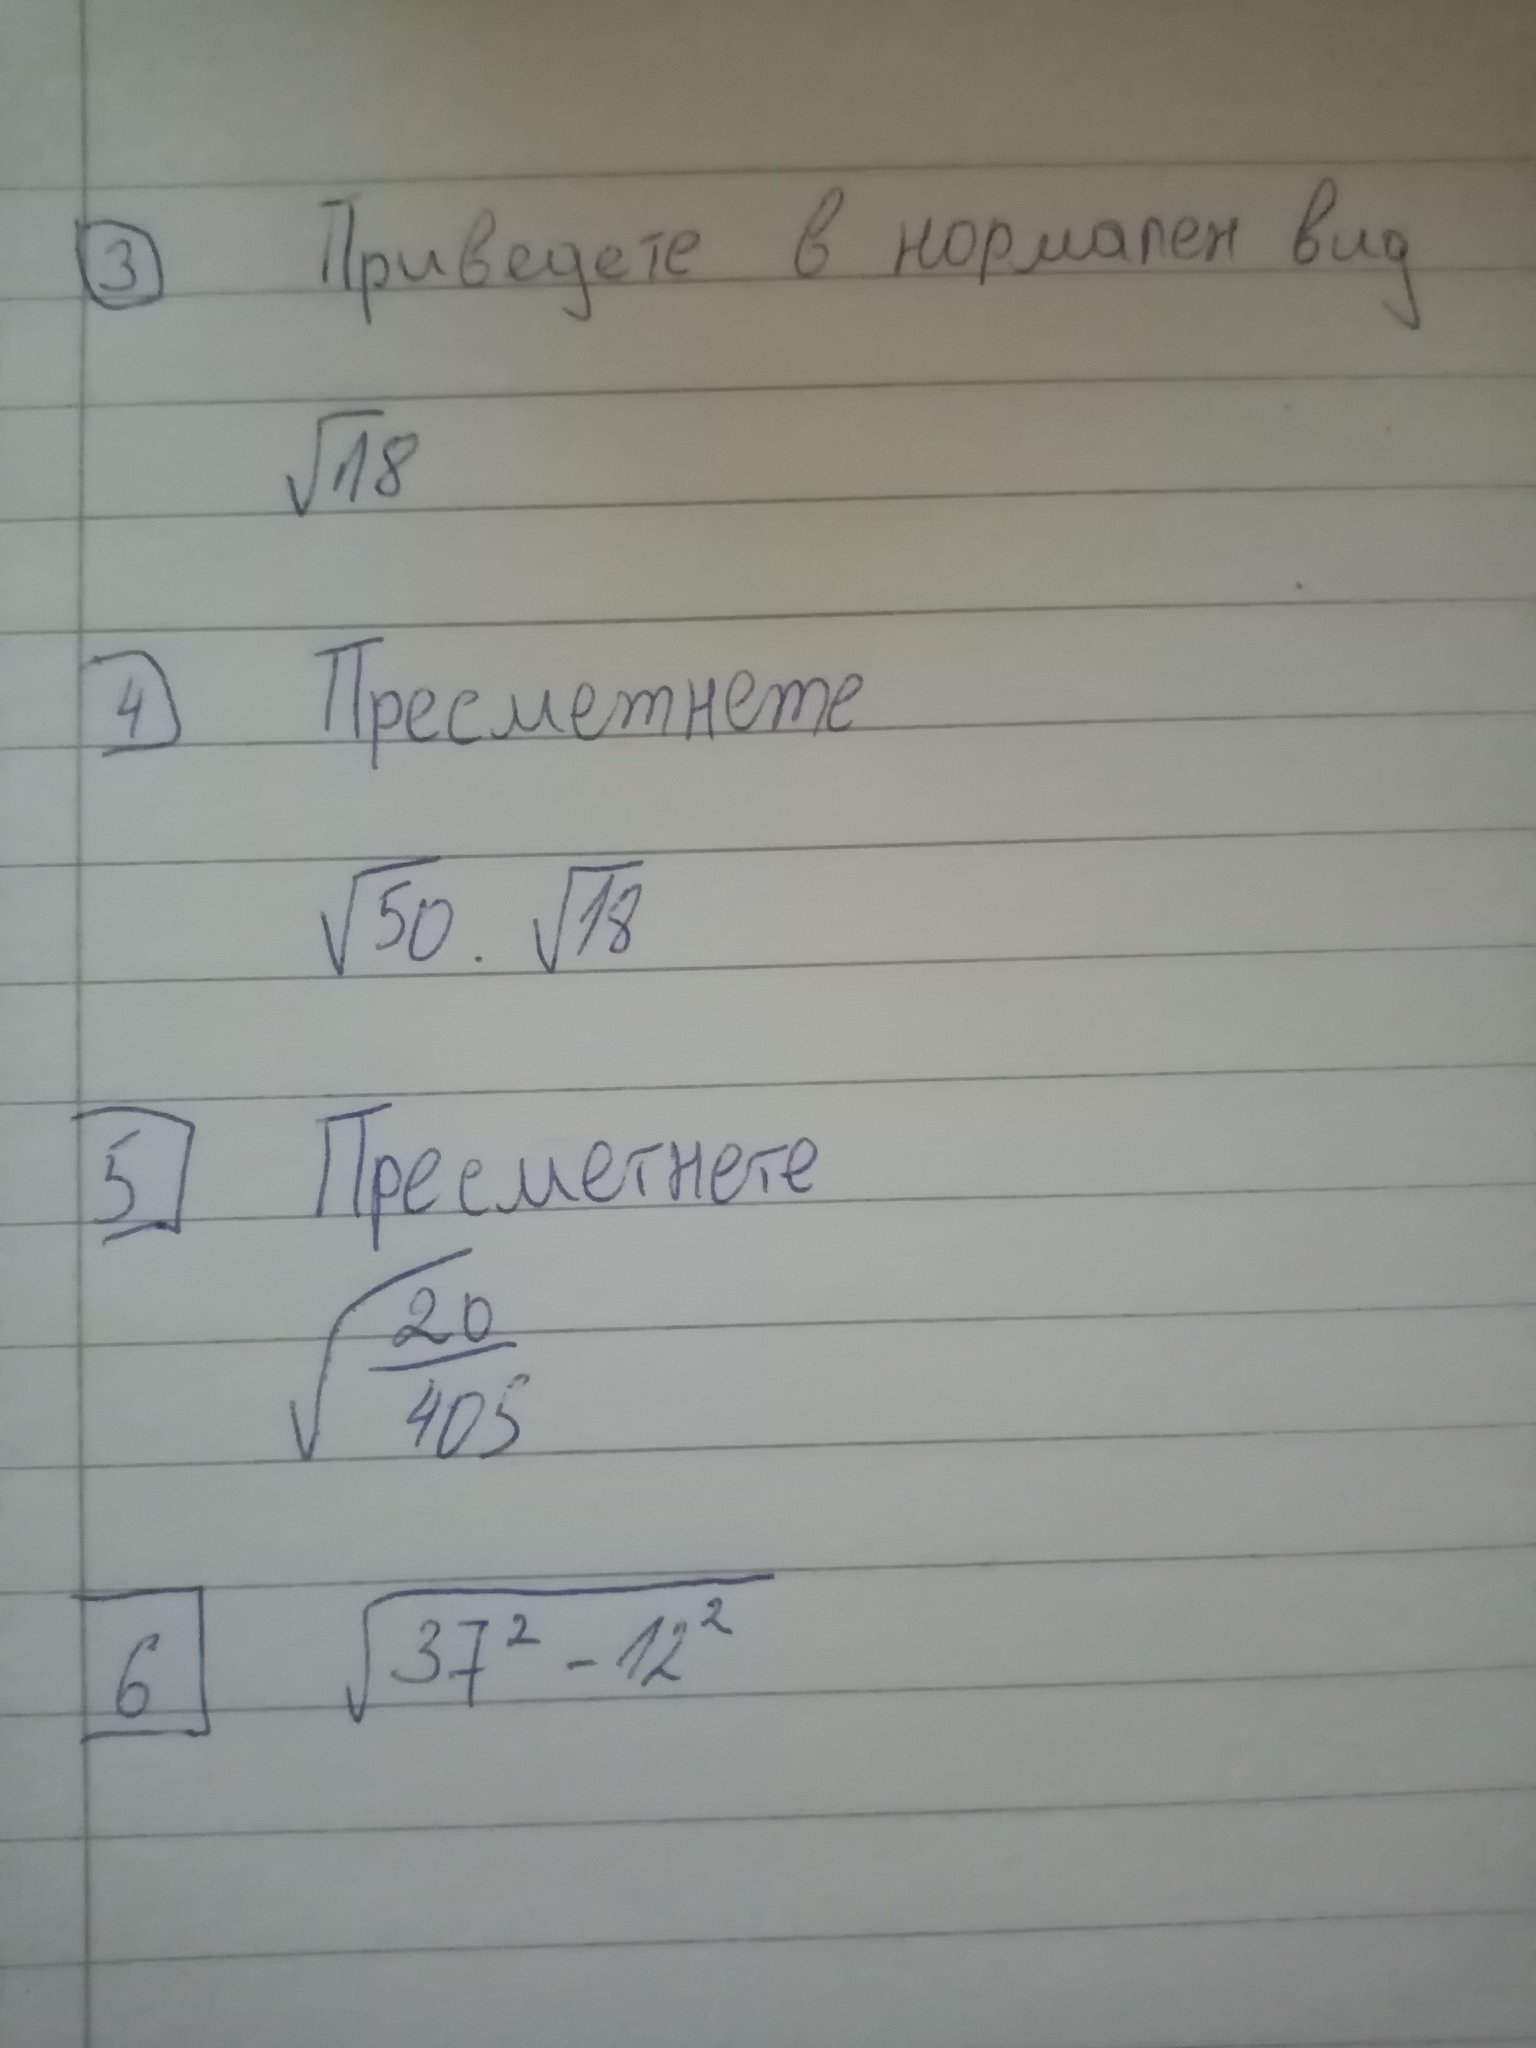 3 Приведете в нормален вид
√18
4 Пресметнете
√50 . √18
5 Пресметнете
√(20/405)
6 √(37² - 12²)